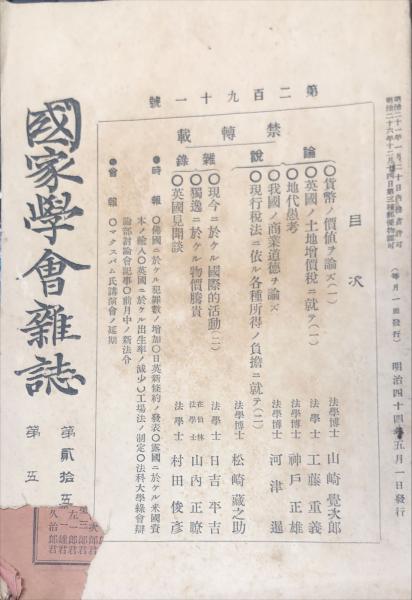 明治二十一年一月二十日內務省許可
明治二十六年十二月十四日第三種郵便物認可
(每月一回發行)
明治四十四年五月一日發行
第二百九十一號
禁轉載
目次
論
○貨幣ノ價値ヲ論ズ(一)
法學博士 山崎覺次郎
○英國ノ土地增價稅ニ就テ(一)
法學士 工藤重義
○地代愚考
法學博士 神戶正雄
說
○我國ノ商業道德ヲ論ズ
法學博士 河津暹
○現行稅法ニ依ル各種所得ノ負擔ニ就テ(二)
法學博士 松崎藏之助
雜錄
○現今ニ於ケル國際的活動(二)
法學士 日吉平吉
○獨逸ニ於ケル物價騰貴
在伯林 法學士 山內正瞭
○英國見聞談
法學士 村田俊彥
●時報
○佛國ニ於ケル犯罪數ノ增加○日英新條約ノ發表○露國ニ於ケル米國資
本ノ輸入○英國ニ於ケル出生率ノ減少○工場法ノ制定○法科大學綠會辯
論部討論會記事○前月中ノ新法令
●會報
○マクスバム氏講演會ノ延期
國家學會雜誌
第貳拾五
第五
次郎君
左一郎君
一雄君
久治郎君